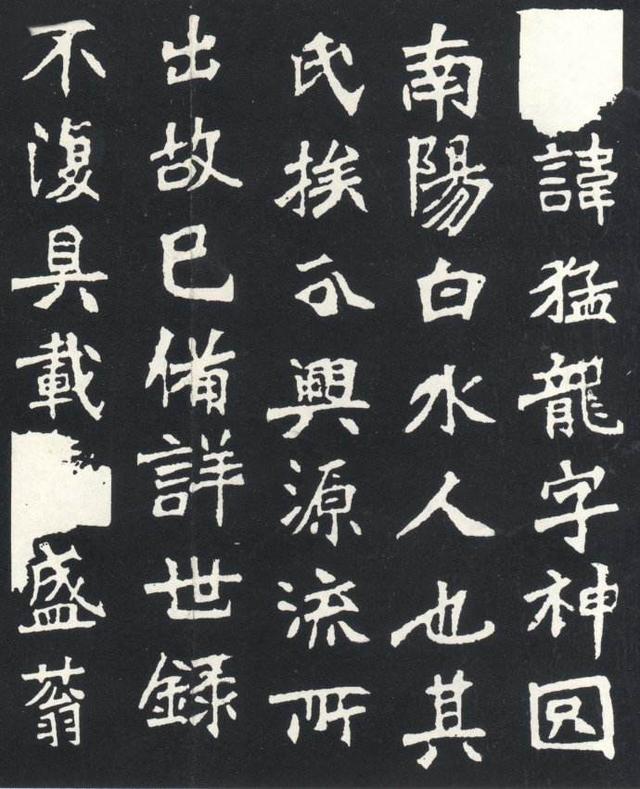 諱猛龍字神囧
南陽白水人也其
氏挨㕥興源流所
出故已備詳世録
不復具載
盛蓊